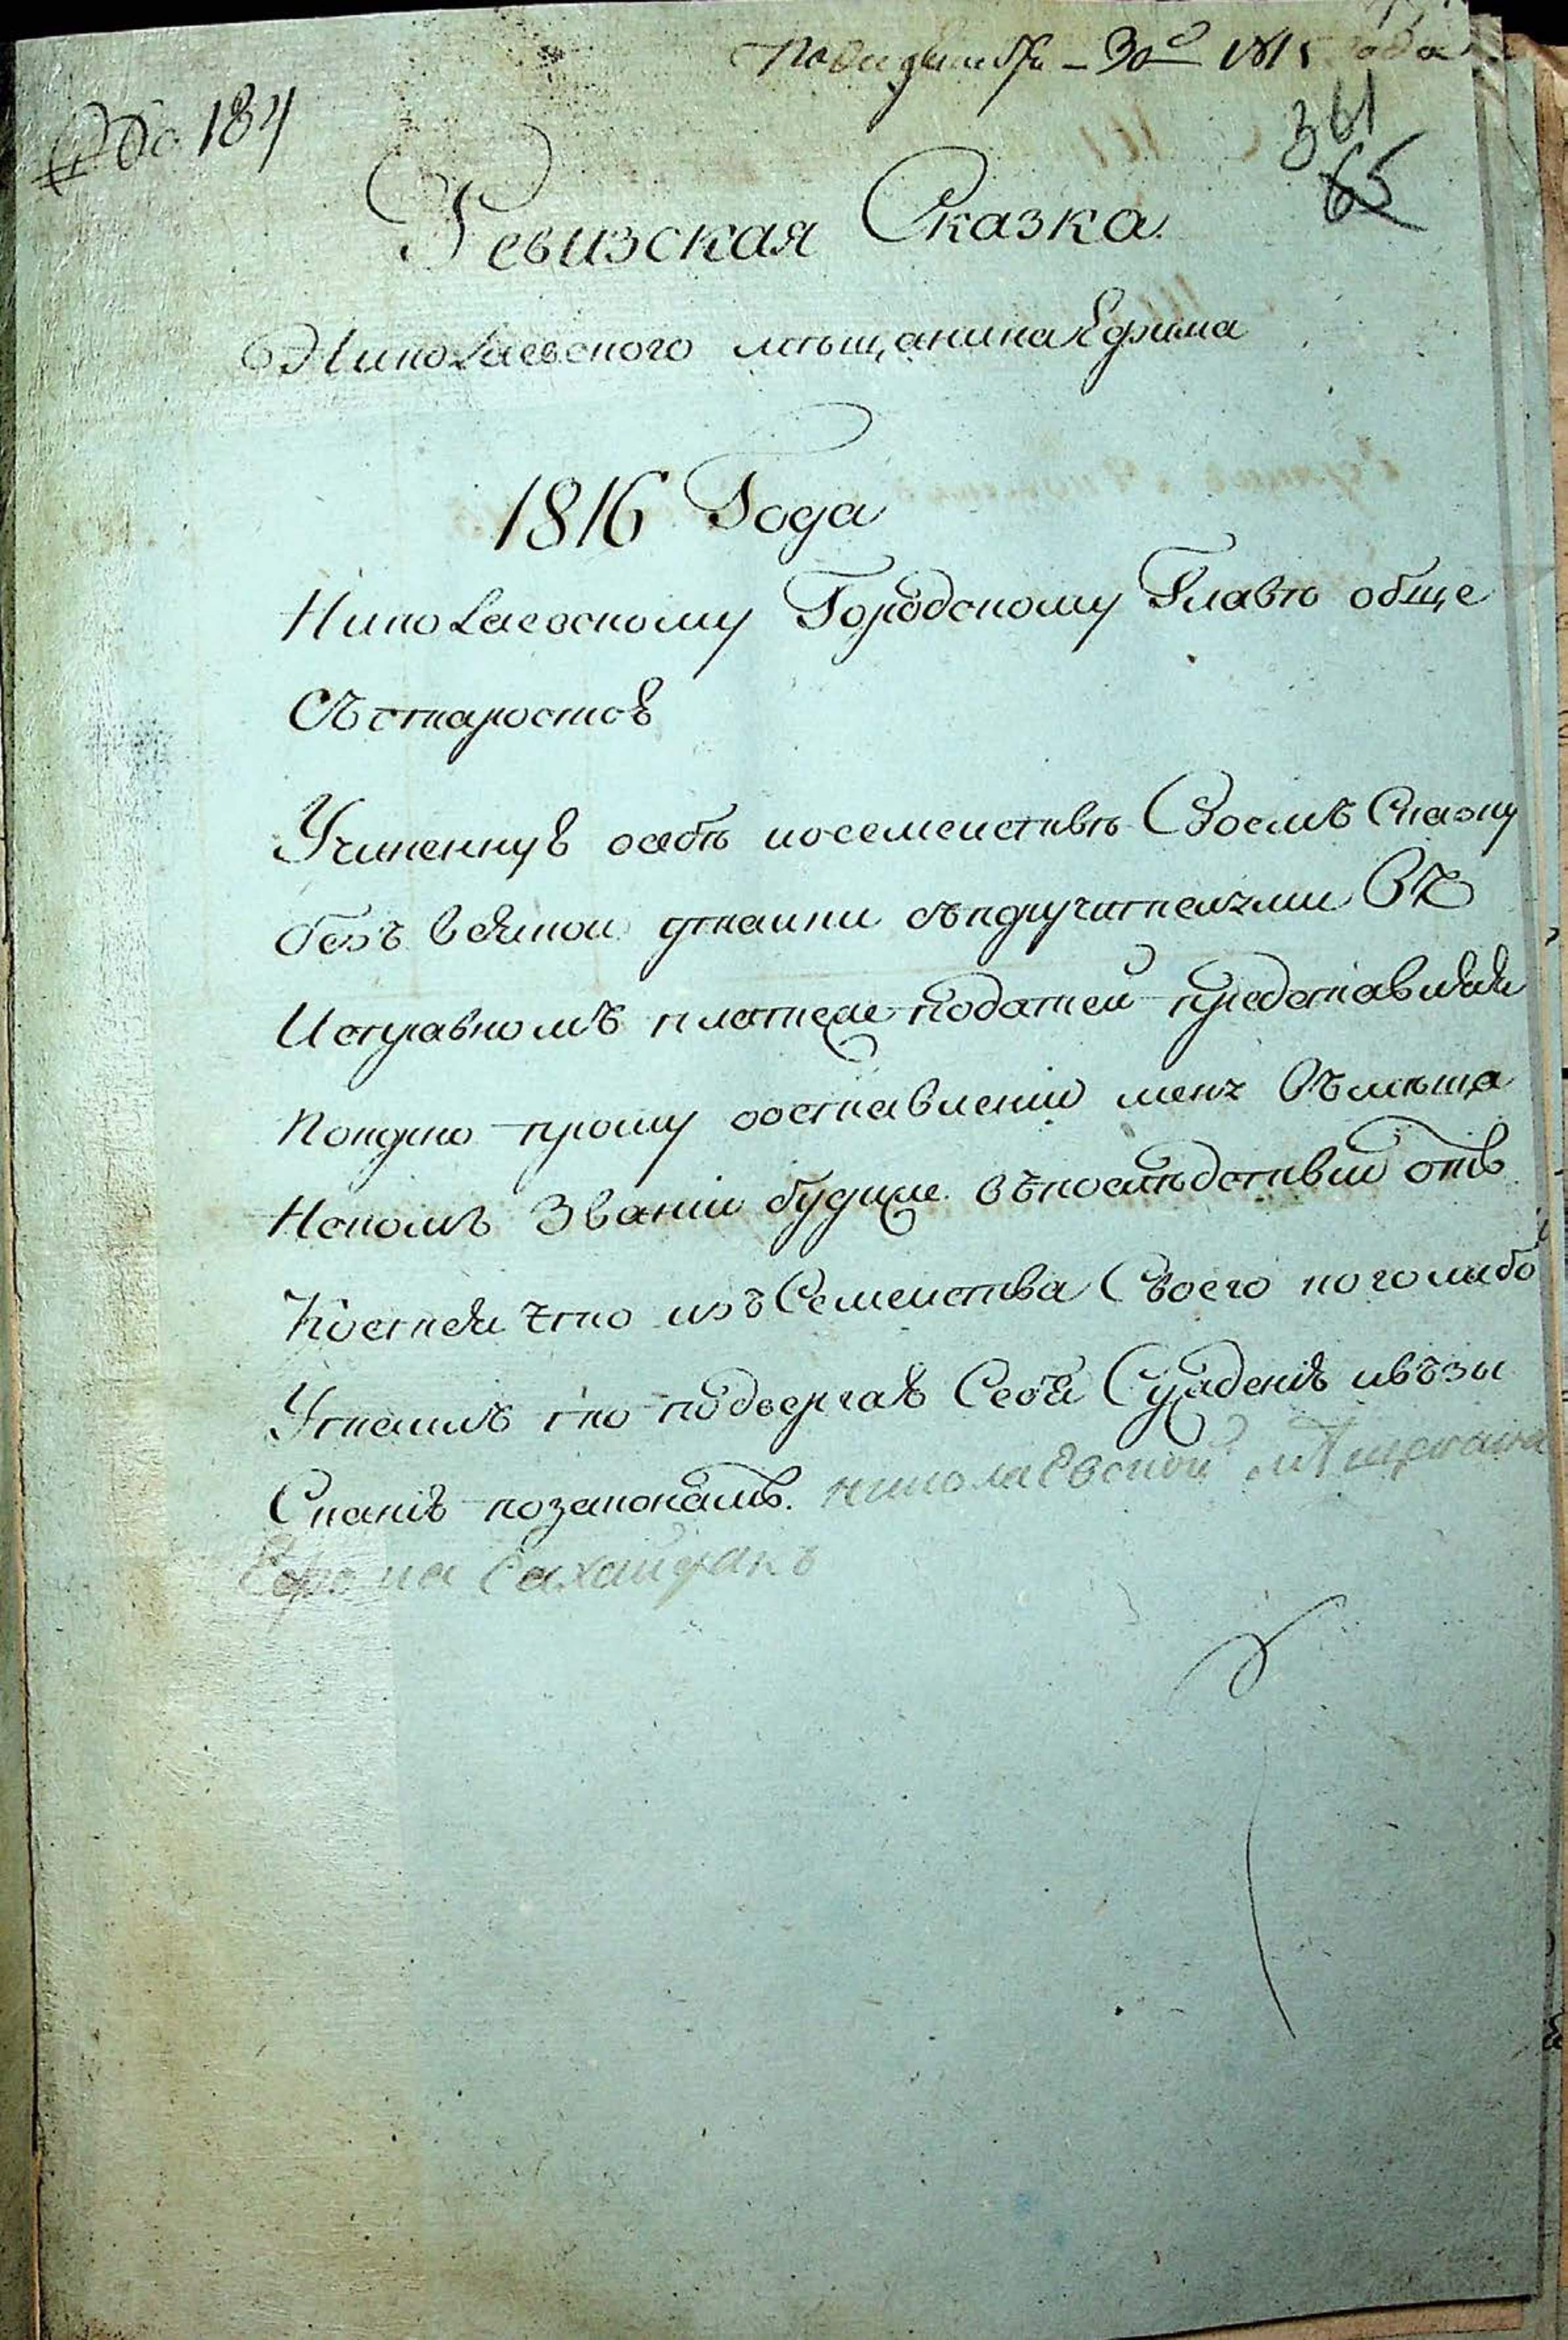 30 1815 года
184
361
65
Ревизская Сказка.
Николаевского мѣщанина Ефима
1816 Года
Николаевскому Городскому Главѣ обще
съ старостою
Учиненную особѣ посемействѣ Своемъ Сказку
безъ всякой утайки съ подручителями въ
Исправномъ платеже податей представляя
покорно прошу оставленiи меня въ мѣща
нскомъ Званiи будиже въ последствiи отъ
Кроется что изъ Семейства Своего кого либо
Утаилъ то подвергаю Себя Сужденiю и взы
Сканiю по законамъ. николаевской мѣщанинъ
Сахайдакъ